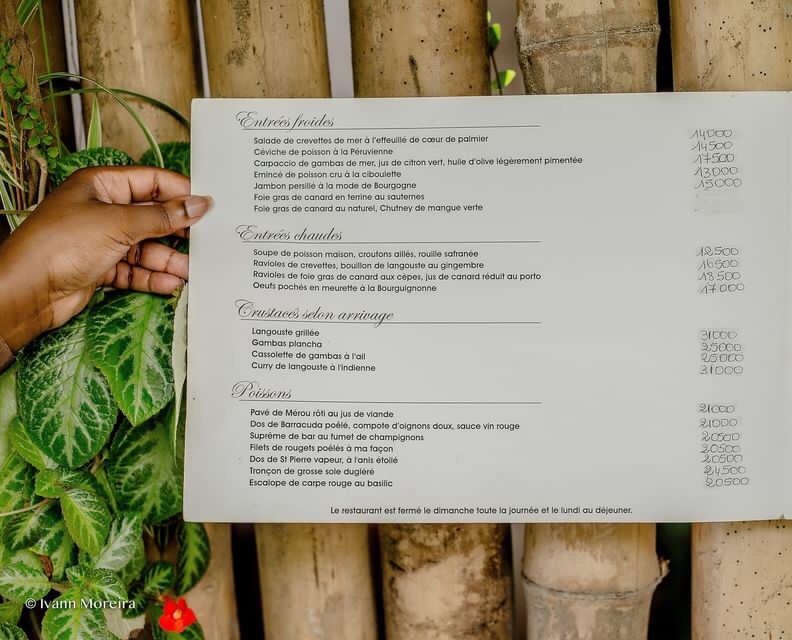 Entrées froides
Salade de crevettes de mer à l'effeuillé de cœur de palmier 14000
Céviche de poisson à la Péruvienne 14500
Carpaccio de gambas de mer, jus de citron vert, huile d'olive légèrement pimentée 17500
Emincé de poisson cru à la ciboulette 13000
Jambon persillé à la mode de Bourgogne 15000
Foie gras de canard en terrine au sauternes
Foie gras de canard au naturel, Chutney de mangue verte
Entrées chaudes
Soupe de poisson maison, croutons aillés, rouille safranée 12500
Ravioles de crevettes, bouillon de langouste au gingembre 16500
Ravioles de foie gras de canard aux cèpes, jus de canard réduit au porto 18500
Oeufs pochés en meurette à la Bourguignonne 17000
Crustacés selon arrivage
Langouste grillée 31000
Gambas plancha 25000
Cassolette de gambas à l'ail 25000
Curry de langouste à l'indienne 31000
Poissons
Pavé de Mérou rôti au jus de viande 21000
Dos de Barracuda poêlé, compote d'oignons doux, sauce vin rouge 21000
Suprême de bar au fumet de champignons 20500
Filets de rougets poêlés à ma façon 20500
Dos de St Pierre vapeur, à l'anis étoilé 20500
Tronçon de grosse sole dugléré 24500
Escalope de carpe rouge au basilic 20500
Le restaurant est fermé le dimanche toute la journée et le lundi au déjeuner.
© Ivann Moreira